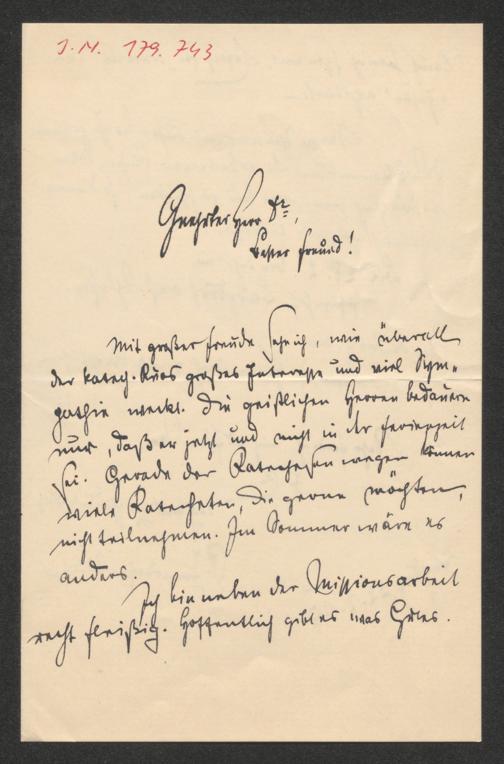 I.N. 179.743
Geehrter Herr Dr.,
bester Freund!
Mit großer Freude sehe ich, wie überall
der katech. Kurs großes Interesse und viel Sym-
pathie weckt. Die geistlichen Herren bedauern
nur, daß er jetzt und nicht in der Ferienzeit
sei. Gerade der Katechesen wegen können
viele Katecheten, die gerne möchten,
nicht teilnehmen. Im Sommer wäre es
anders.
Ich bin neben der Missionsarbeit
recht fleißig. Hoffentlich gibt es was Gutes.